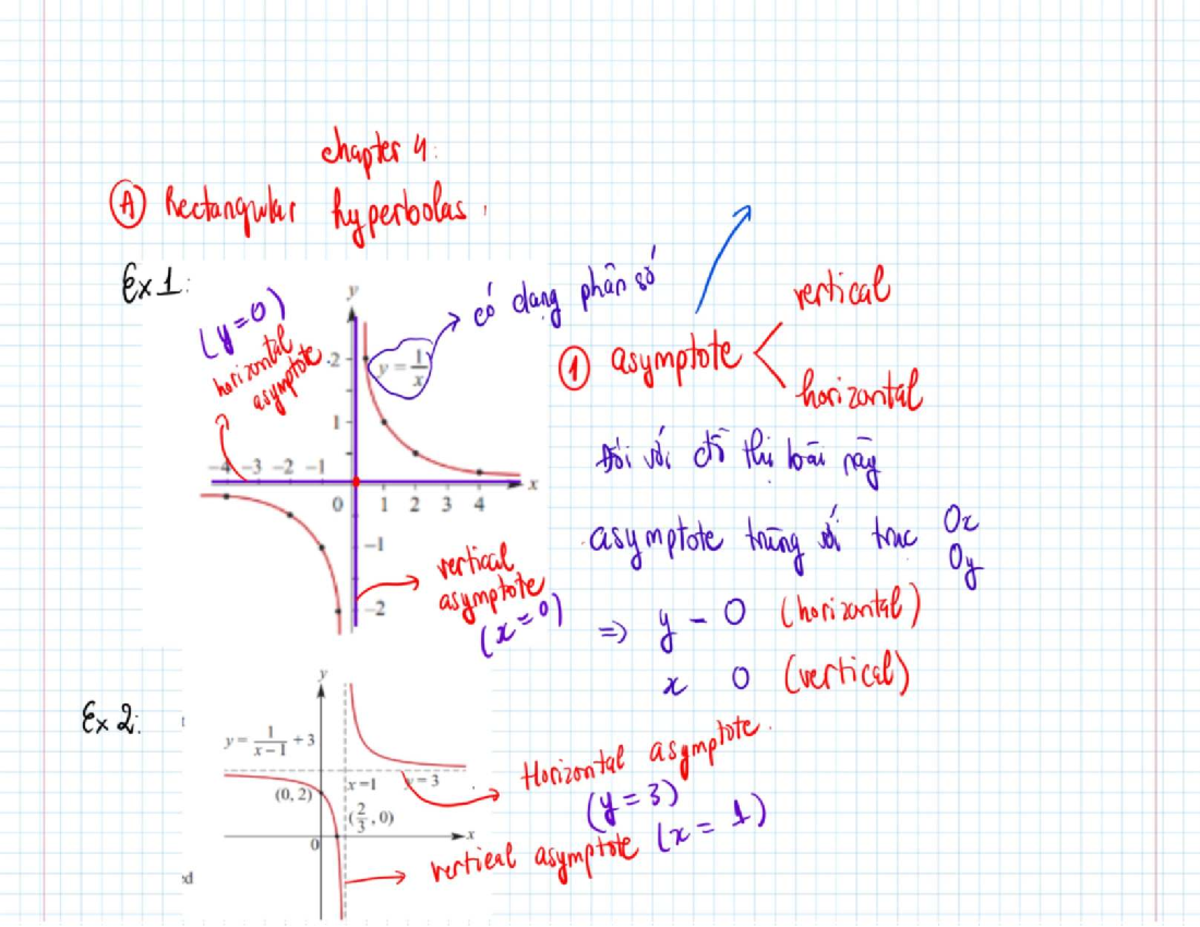 chapter 4:
(A) Rectangular hyperbolas.
Ex 1:
(y=0)
horizontal
asymptote
y
y = 1/x
có dạng phân số
2
1
-4 -3 -2 -1
0 1 2 3 4
x
-1
-2
vertical
asymptote
(x=0)
vertical
(1) asymptote
horizontal
Đối với đồ thị loại này
asymptote trùng với trục Ox
Oy
=> y - 0 (horizontal)
x 0 (vertical)
Ex 2:
y
y = 1/(x-1) + 3
x=1
y=3
(0, 2)
(2/3, 0)
0
x
Horizontal asymptote.
(y=3)
vertical asymptote (x = 1)